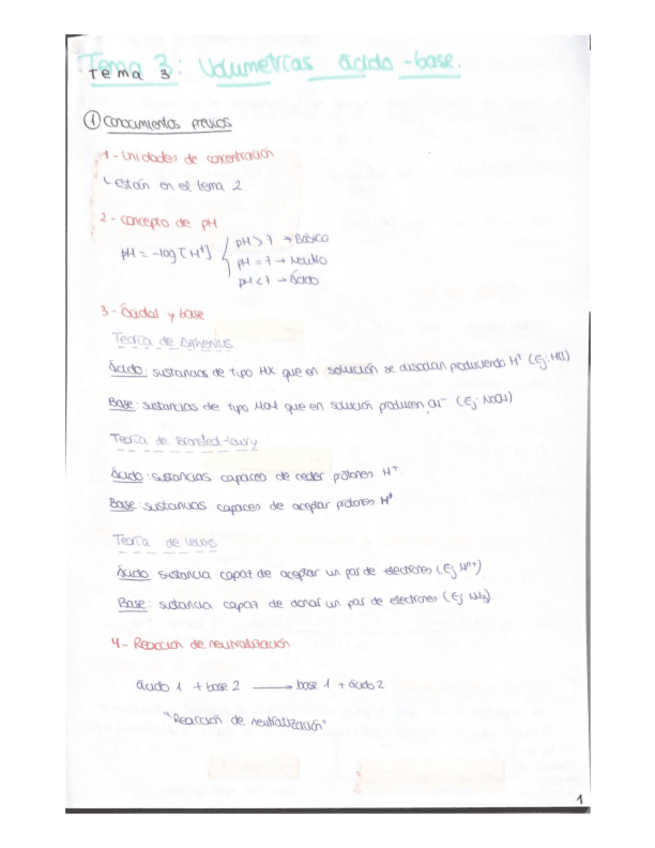 Tema 3: Volumetrias ácido-base.
Tema 3
① Conocimientos previos
1- Unidades de concentración
están en el tema 2
2- Concepto de pH
pH = -log [H⁺]
pH > 7 → Básico
pH = 7 → Neutro
pH < 7 → Ácido
3- Ácidos y base
Teoría de Arrhenius
Ácido: sustancias de tipo HX que en solución se disocian produciendo H⁺ (Ej: HCl)
Base: sustancias de tipo MOH que en solución producen OH⁻ (Ej: NaOH)
Teoría de Bronsted-Lowry
Ácido: sustancias capaces de ceder protones H⁺
Base: sustancias capaces de aceptar protones H⁺
Teoría de Lewis
Ácido: sustancia capaz de aceptar un par de electrones (Ej
Base: sustancia capaz de donar un par de electrones (Ej NH₃)
4- Reacción de neutralización.
ácido 1 + base 2 → base 1 + ácido 2
"Reacción de neutralización"
1